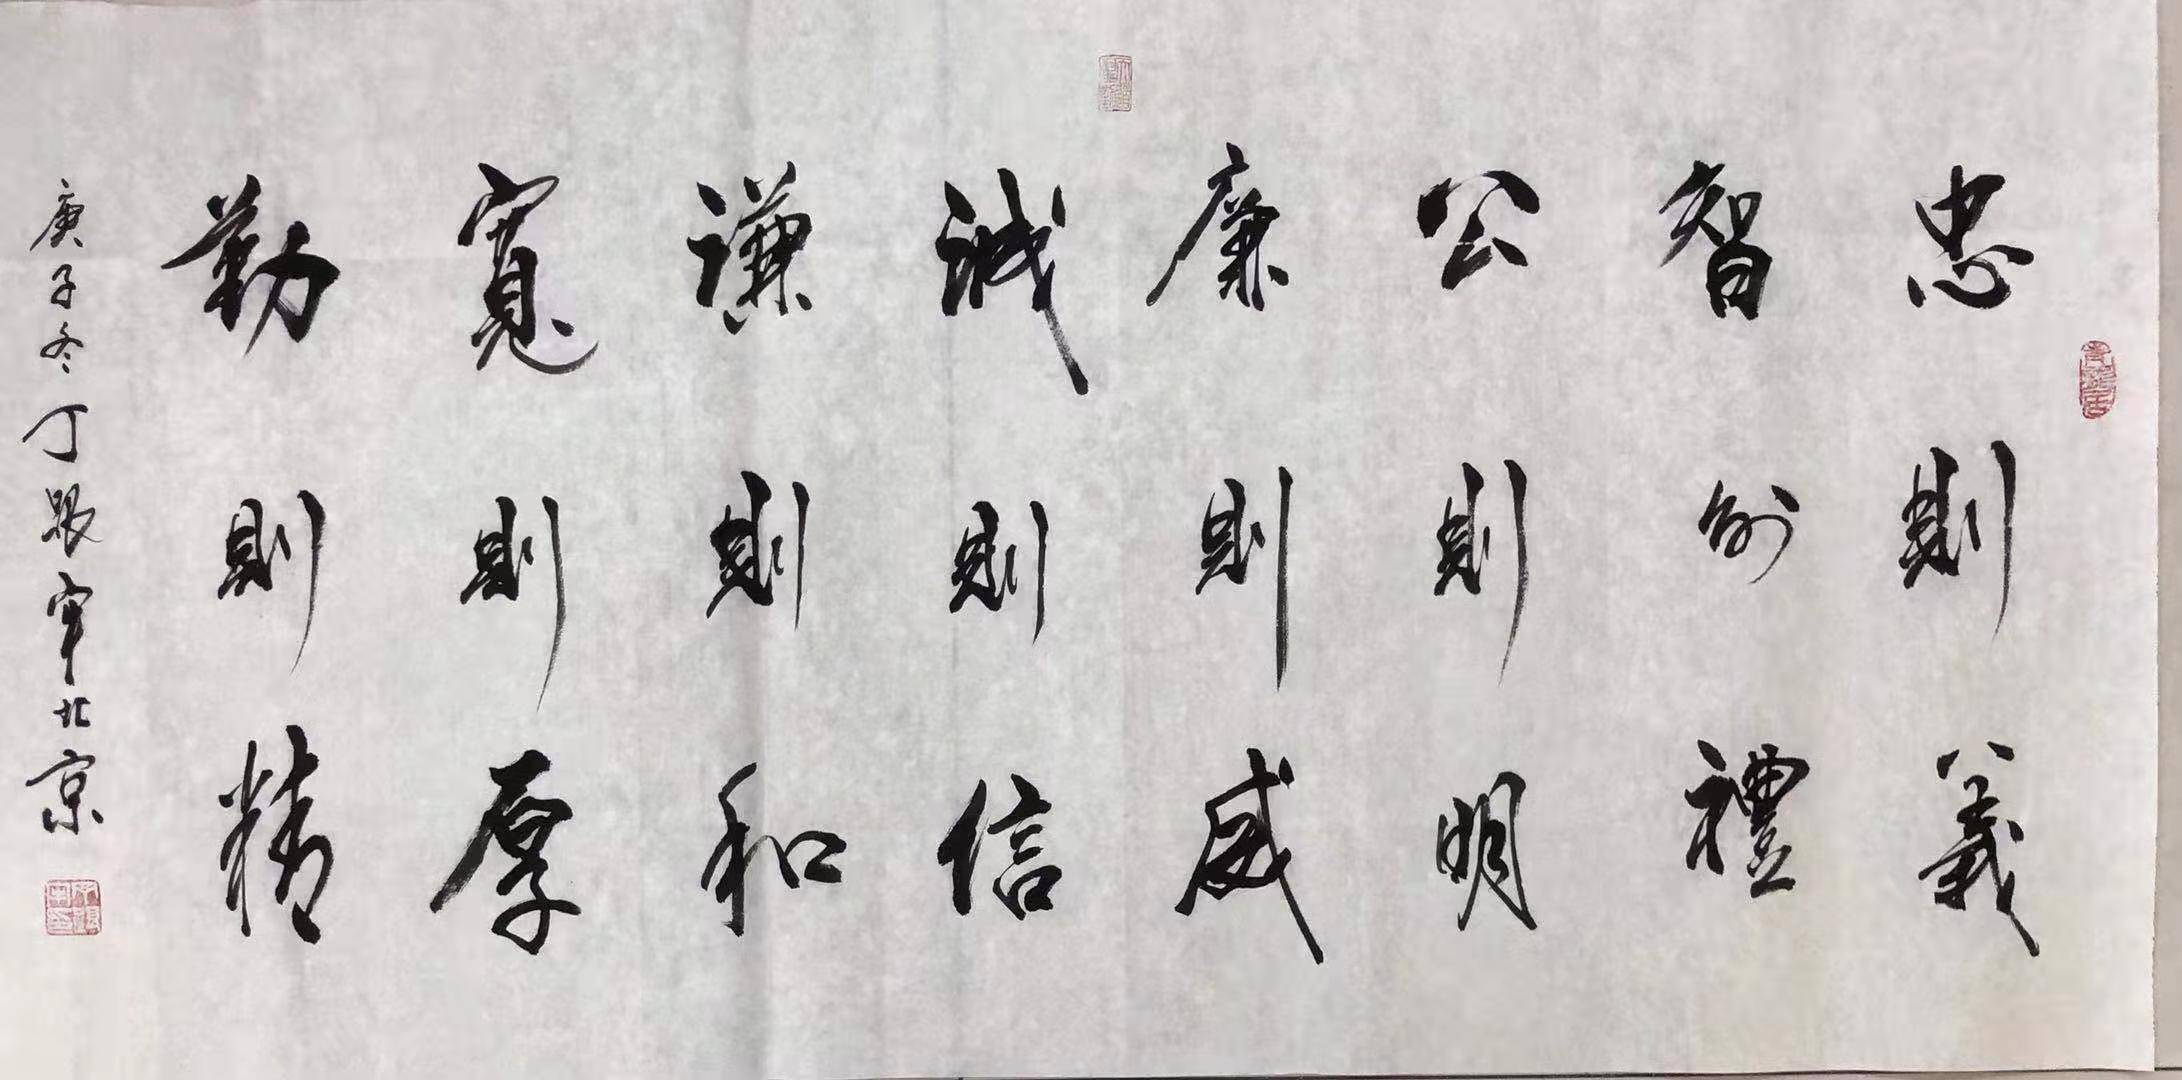 忠則義
智則禮
公則明
廉則威
誠則信
謙則和
寬則厚
勤則精
庚子冬丁跟牢北京